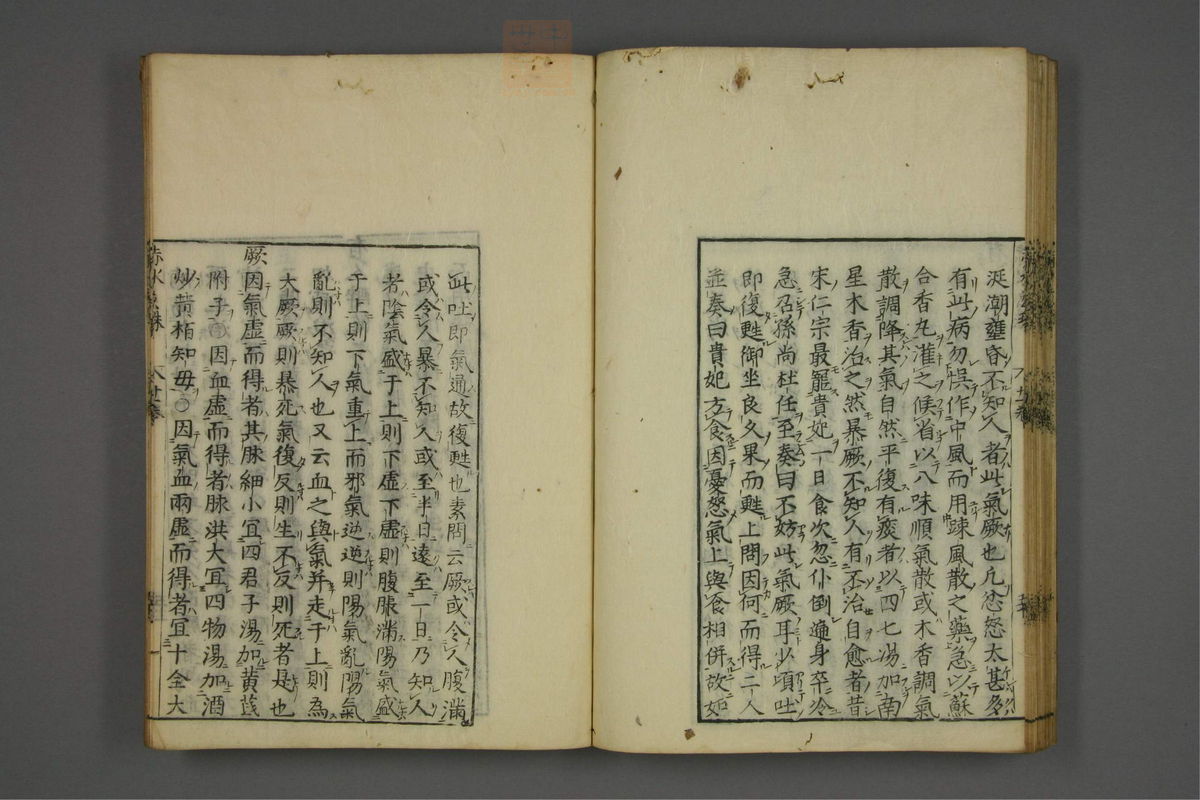 涎潮壅昏不知人者此氣厥也凢忿怒太甚多
有此病勿悞作中風而用踈風散之藥急以蘇
合香丸灌之候省以八味順氣散或木香調氣
散調降其氣自然平復有痰者以四七湯加南
星木香治之然暴厥不知人有不治自愈者昔
宋仁宗最寵貴妃一日食次忽仆倒遍身卒冷
急召孫尚杜任至奏曰不妨此氣厥耳少頃吐
即復甦御坐良久果而甦上問因何而得二人
並奏曰貴妃方食因憂怒氣上與食相併故如
此吐即氣通故復甦也素問云厥或令人腹滿
或令人暴不知人或至半日遠至一日乃知人
者陰氣盛于上則下虛下虛則腹脹滿陽氣盛
于上則下氣重上而邪氣逆逆則陽氣亂陽氣
亂則不知人也又云血之與氣并走于上則為
大厥厥則暴死氣復反則生不反則死者是也
厥因氣虛而得者其脉細小冝四君子湯加黄芪
附子○因血虛而得者脉洪大冝四物湯加酒
炒黄栢知母○因氣血兩虛而得者冝十全大
赤水玄珠